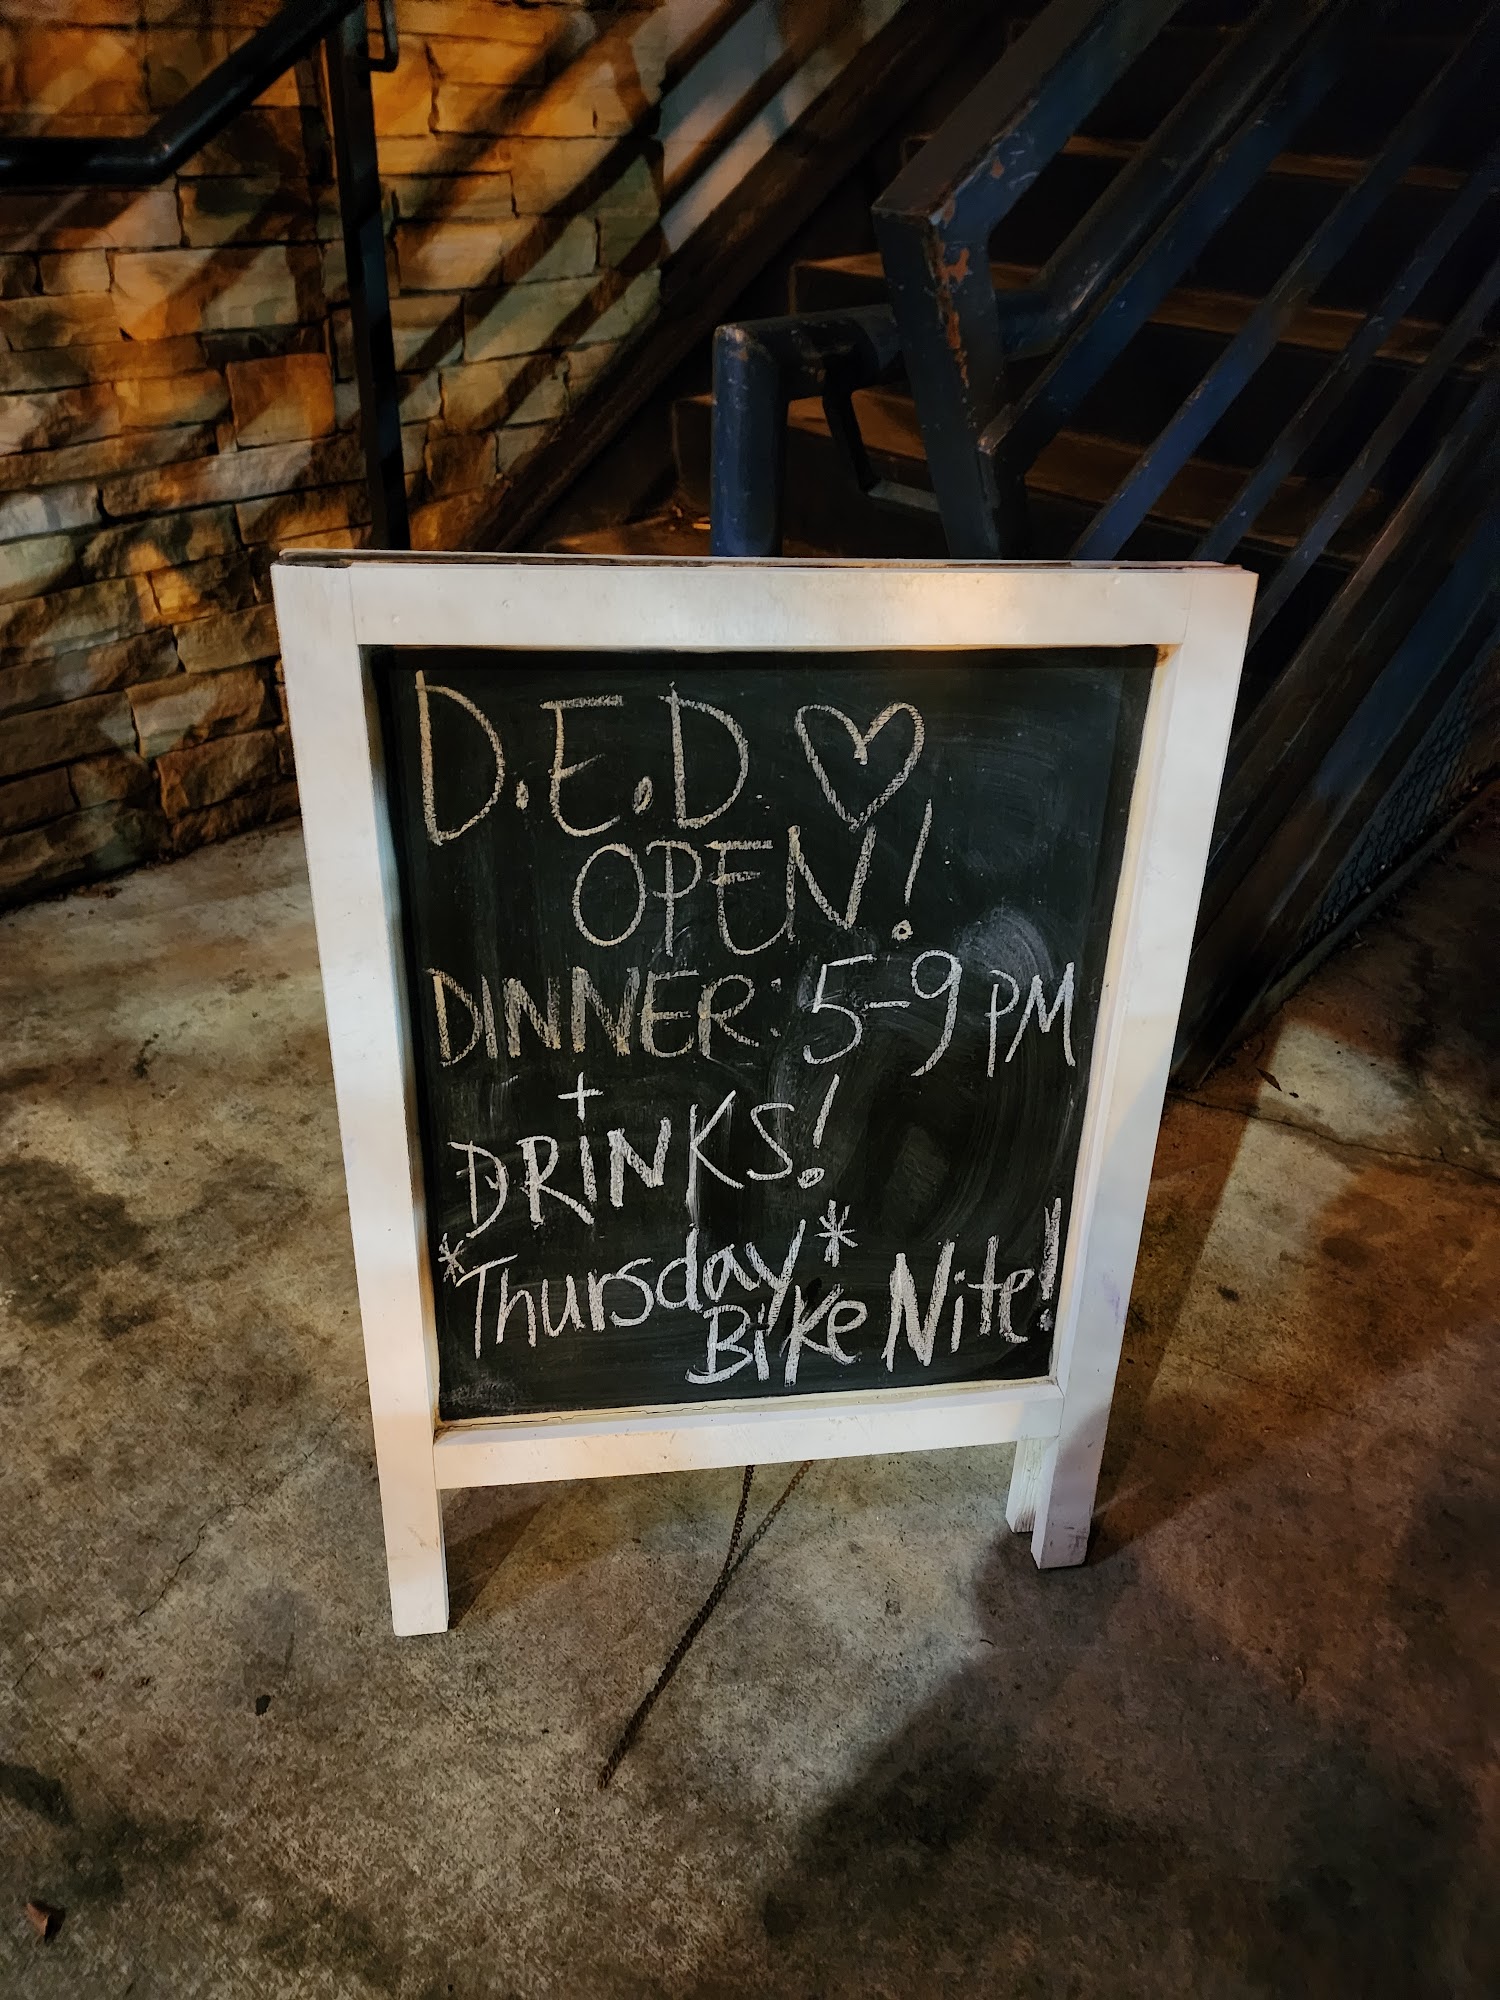 D.E.D. ♡
OPEN!
DINNER: 5-9 PM
+
DRiNKS!
*Thursday*
Bike Nite!